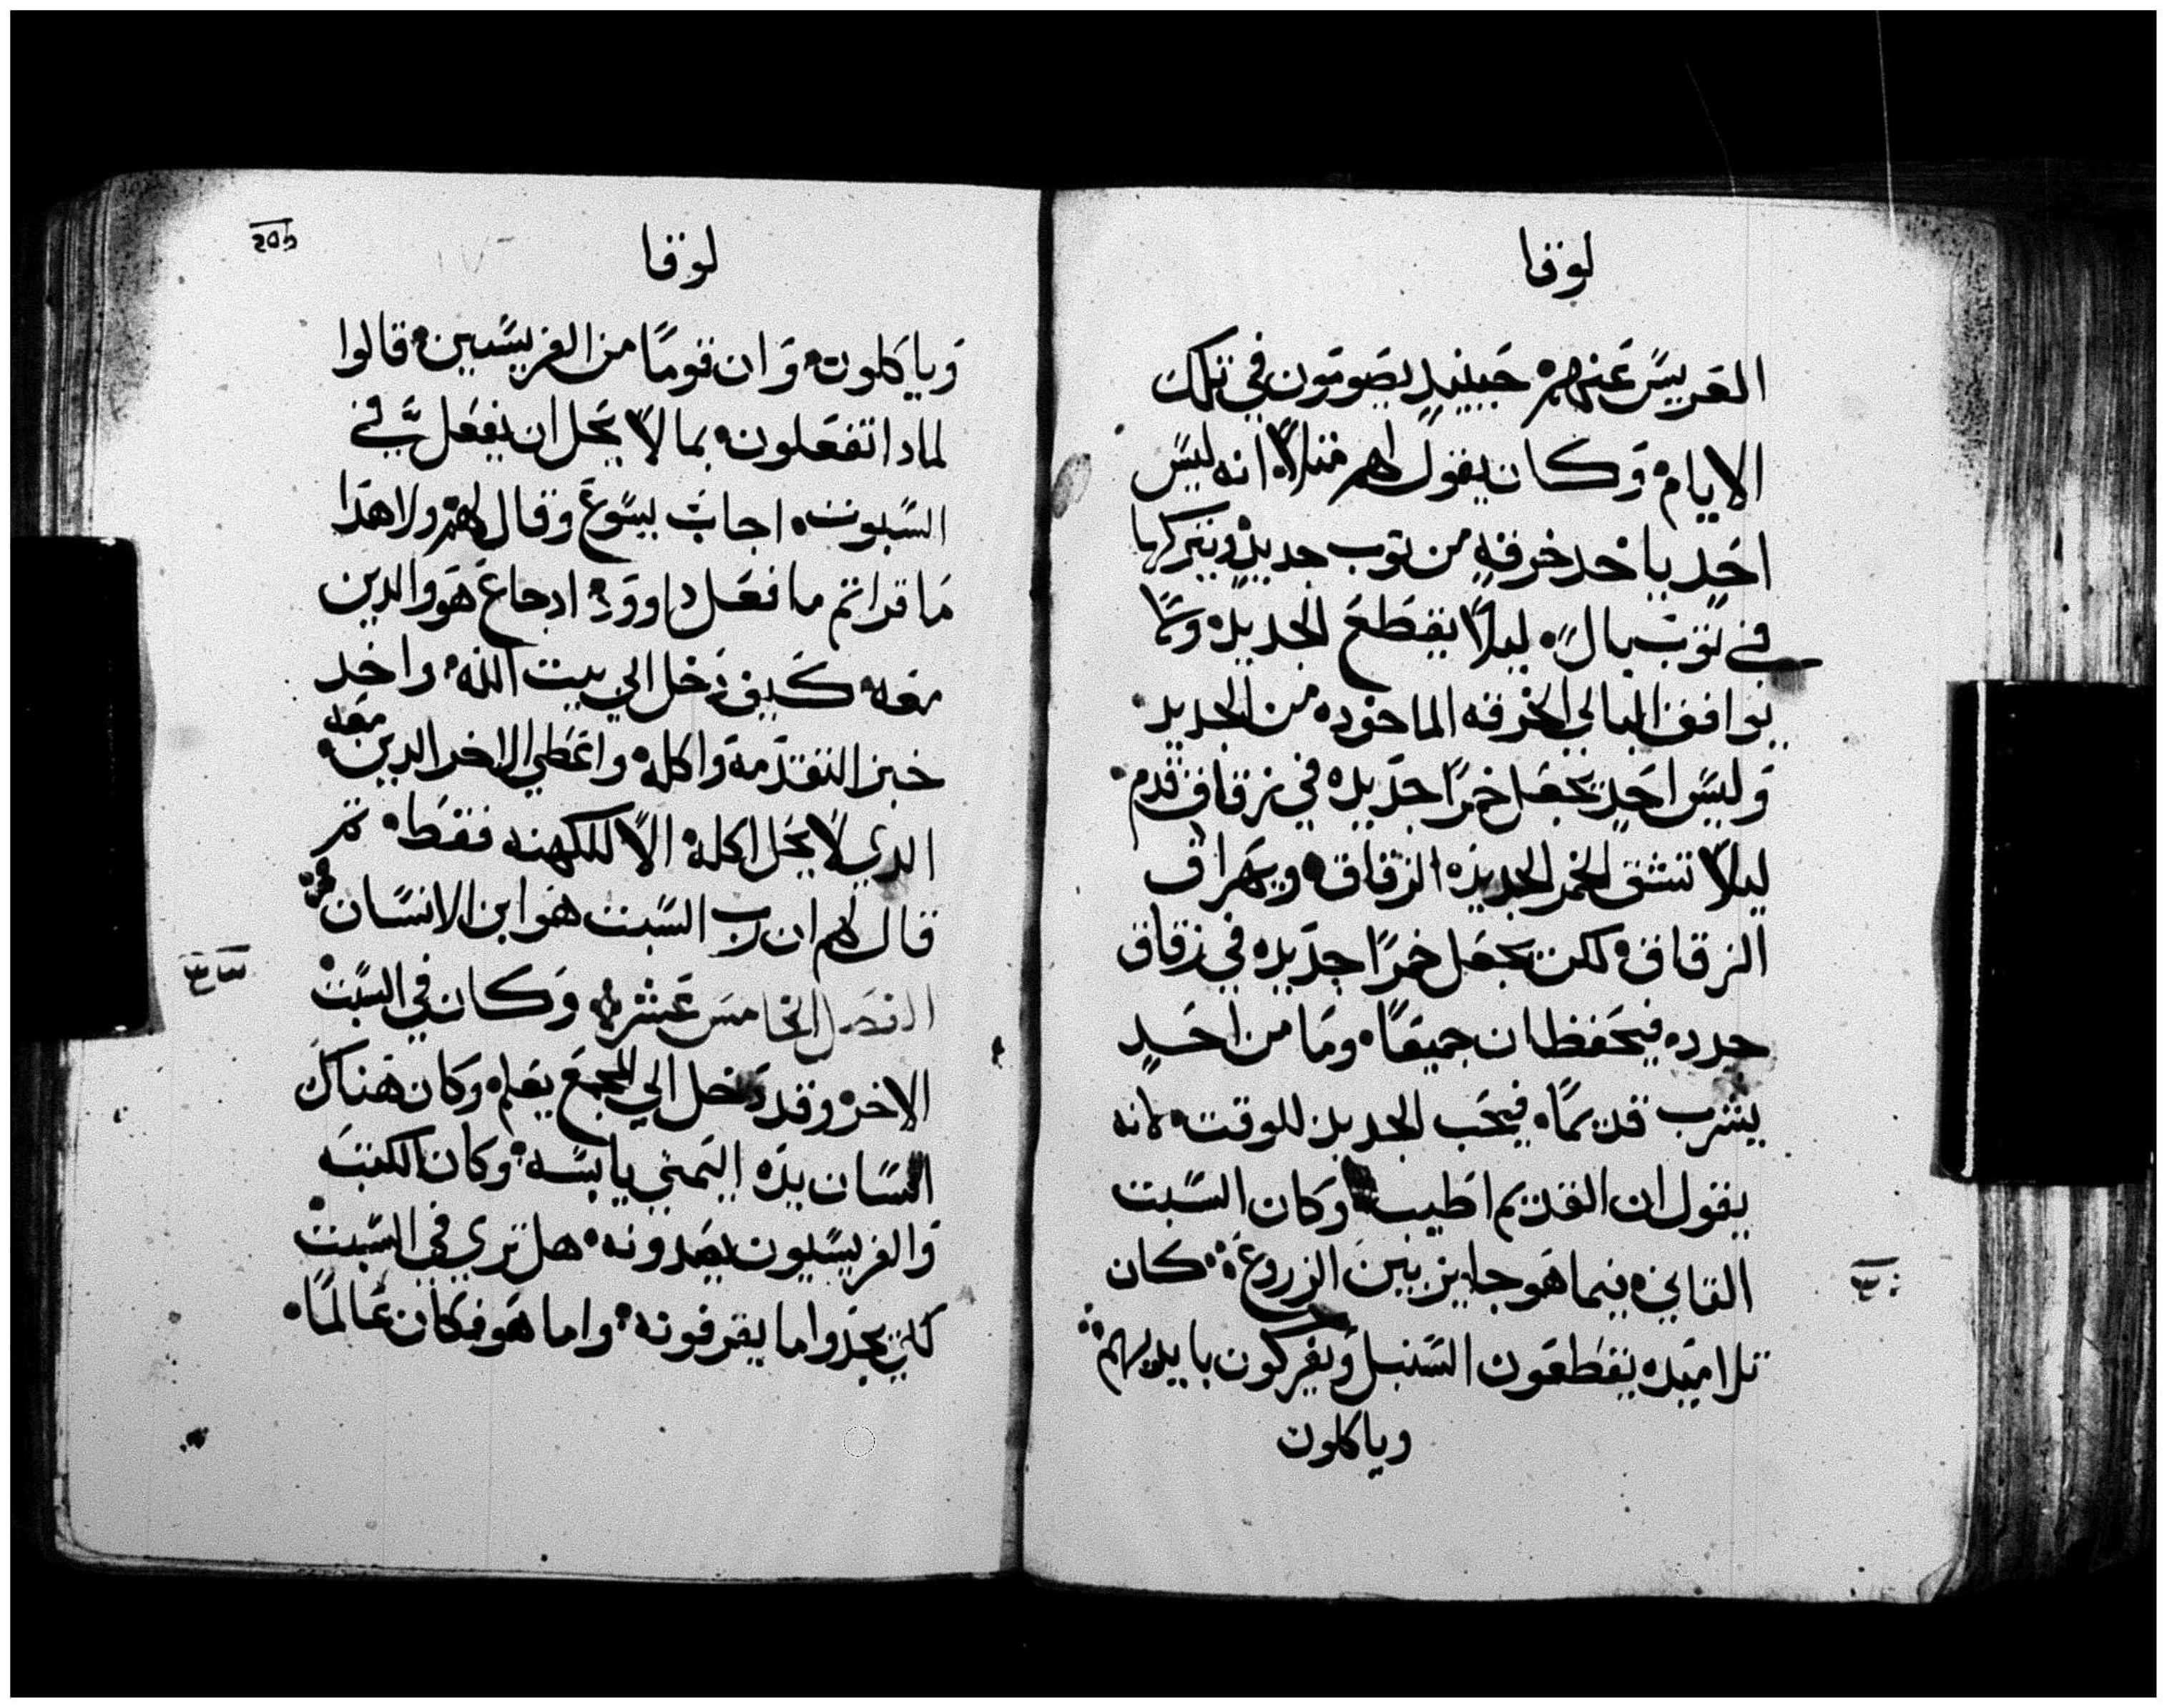 لوقا
العريس عنهم حينيدٍ يصومون في تلك
الايام وكان يقول لهم مثلاً انه ليس
احد ياخد خرقه من توب جديد ويتركها
في توب بال ليلاً يقطع الجديد وما
يوافق البالي الخرقه الماخوده من الجديد
وليس احد يجعل خمرًا جديده في زقاق قدم
ليلاً تشق الخمر الجديده الزقاق ويهراق
الزقاق لكن يجعل خمرًا جديده في زقاق
جدده فيحفظان جميعًا وما من احدٍ
يشرب قديمًا فيحب الجديد للوقت لانه
يقول ان القديم اطيب وكان السبت
التاني بينما هو جايز بين الزروع كان
تلاميده يقطعون السنبل ويفركون بايديهم
وياكلون
لوقا
وياكلون وان قومًا من الفريسيين قالوا
لمادا تفعلون بما لا يحل ان يفعل في
السبوت اجاب يسوع وقال لهم ولا هدا
ما قراتم ما فعل داوود ادجاع هو والدين
معه كيف دخل الي بيت الله واخد
خبز التقدمة واكله واعطي الاخر الدين معه
الدي لا يحل اكله الا للكهنه فقط تم
قال لهم ان رب السبت هو ابن الانسان
الفصل الخامس عشر وكان في السبت
الاخر وقد دخل الي المجمع يعلم وكان هناك
انسان يده اليمني يابسه وكان الكتبه
والفريسيون يصدونه هل تري في السبت
كي يجدوا ما يقرفونه واما هو فكان عالمًا